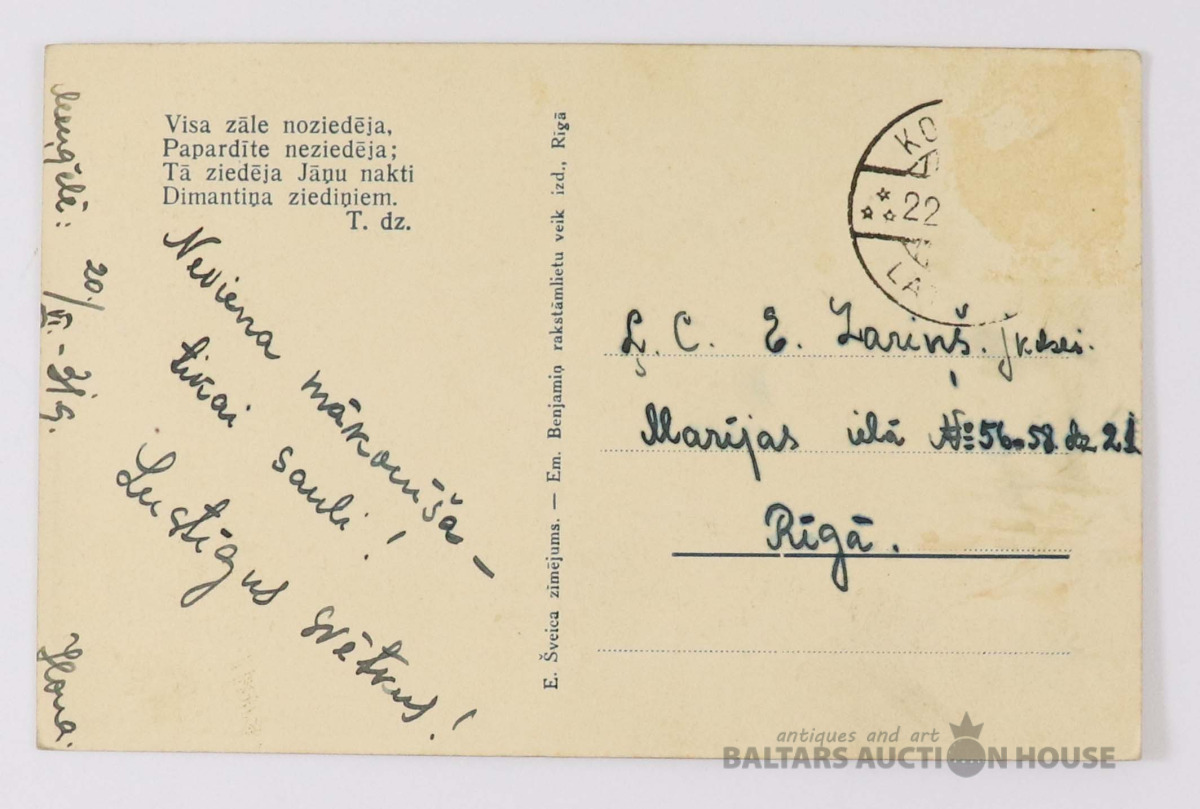 Visa zāle noziedēja,
Papardīte neziedēja;
Tā ziedēja Jāņu nakti
Dimantiņa ziediņiem.
T. dz.
Neviena mākonīša –
tikai sauli!
Lustīgus svētkus!
Ilona.
E. Šveica zīmējums. — Em. Benjamiņ rakstāmlietu veik izd., Rīgā
KO
22
LA
Ļ. C. E. Zariņš.
Marijas ielā № 56-58. dz 21
Rīgā.
antiques and art
BALTARS AUCTION HOUSE